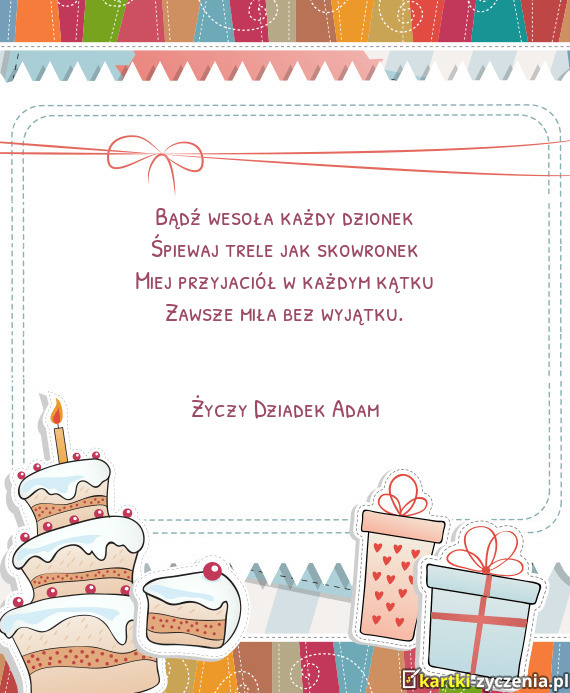 Bądź wesoła każdy dzionek
Śpiewaj trele jak skowronek
Miej przyjaciół w każdym kątku
Zawsze miła bez wyjątku.
Życzy Dziadek Adam
kartki-zyczenia.pl